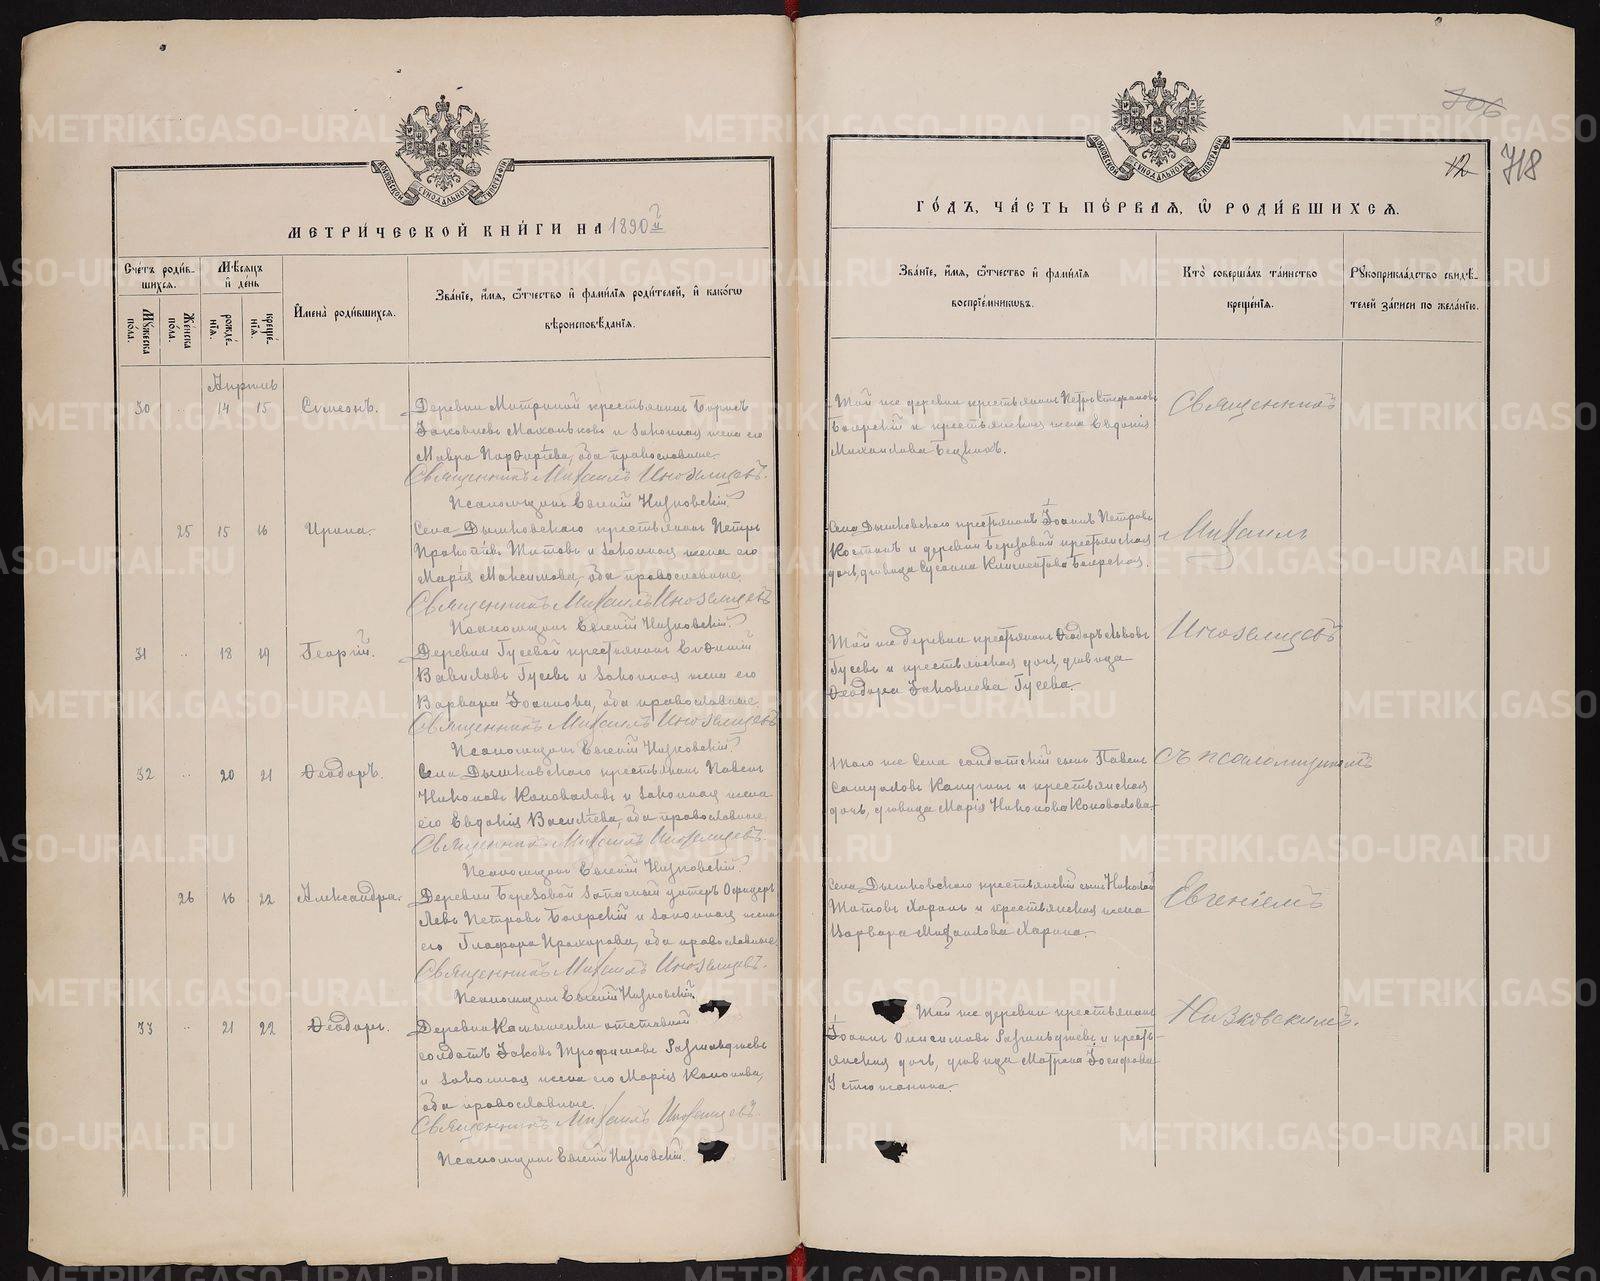 МЕТРИ́ЧЕСКОЙ КНИ́ГИ НА 1890 й
Сче́тъ роди́вшихся.
Мѣсяцъ и҆ де́нь
Мꙋ́жеска по́ла.
Же́нска по́ла.
рожде́нїѧ.
креще́нїѧ.
И҆мена̀ роди́вшихсѧ.
Зва́нїе, и҆́мѧ, ѻ҆́тчество и҆ фами́лїѧ роди́телей, и҆ како́гѡ вѣроисповѣ́данїѧ.
Апрель
30 .. 14 15 Симеонъ.
Деревни Матриной крестьянинъ Борисъ
Іаковлевъ Маханьковъ и законная жена его
Мавра Порфирiева, оба православные.
Священникъ Михаилъ Иноземцевъ.
Псаломщикъ Евгенiй Низковскiй
25 15 16 Ирина.
Села Дымковскаго крестьянинъ Петръ
Прокопiевъ Титовъ и законная жена его
Марiя Максимова, оба православные.
Священникъ Михаилъ Иноземцевъ
Псаломщикъ Евгенiй Низковскiй
31 .. 18 19 Георгiй.
Деревни Гусевой крестьянинъ Евфимiй
Вавиловъ Гусевъ и законная жена его
Варвара Iоаннова, оба православные.
Священникъ Михаилъ Иноземцевъ
Псаломщикъ Евгенiй Низковскiй
32 .. 20 21 Ѳеодоръ.
Села Дымковскаго крестьянинъ Павелъ
Никоновъ Коноваловъ и законная жена
его Евдокiя Василiева, оба православные.
Священникъ Михаилъ Иноземцевъ.
Псаломщикъ Евгенiй Низковскiй
26 16 22 Александра.
Деревни Березовой запасный унтеръ Офицеръ
Левъ Петровъ Боярскiй и законная жена
его Глафира Прохорова, оба православные.
Священникъ Михаилъ Иноземцевъ.
Псаломщикъ Евгенiй Низковскiй.
33 .. 21 22 Ѳеодоръ.
Деревни Камышенки отставной
солдатъ Iаковъ Трофимовъ
и законная жена его Марiя Кононова,
оба православные.
Священникъ Михаилъ Иноземцевъ.
Псаломщикъ Евгенiй Низковскiй.
706
12 718
ГО́ДЪ, ЧА́СТЬ ПЕ́РВАЯ, Ѡ҆ РОДИ́ВШИХСѦ.
Зва́нїе, и҆́мѧ, ѻ҆́тчество и҆ фами́лїѧ воспрїе́мникѡвъ.
Кто̀ соверша́лъ та́инство креще́нїѧ.
Рꙋкоприкла́дство свидѣ́телей за́писи по жела́нїю.
Той же деревни крестьянинъ Петръ Стефановъ
Боярскiй и крестьянская жена Евдокiя
Михаилова
Священникъ
Села Дымковскаго крестьянинъ Iоаннъ Петровъ
Костинъ и деревни Березовой крестьянская
дочь, дѣвица Сусанна Климентова Боярская.
Михаилъ
Той же деревни крестьянинъ Ѳеодоръ Львовъ
Гусевъ и крестьянская дочь, дѣвица
Ѳеодора Iаковлева Гусева.
Иноземцевъ
Того же села солдатскiй сынъ Павелъ
Самуиловъ Капугинъ и крестьянская
дочь, дѣвица Марiя Никонова Коновалова.
съ псаломщикомъ
Села Дымковскаго крестьянскiй сынъ Николай
Титовъ Харинъ и крестьянская жена
Варвара Михаилова Харина.
Евгенiемъ
Той же деревни крестьянинъ
Iоаннъ Онисимовъ и кресть-
янская дочь, дѣвица Матрона Iосифова
Устюжанина.
Низковскимъ.